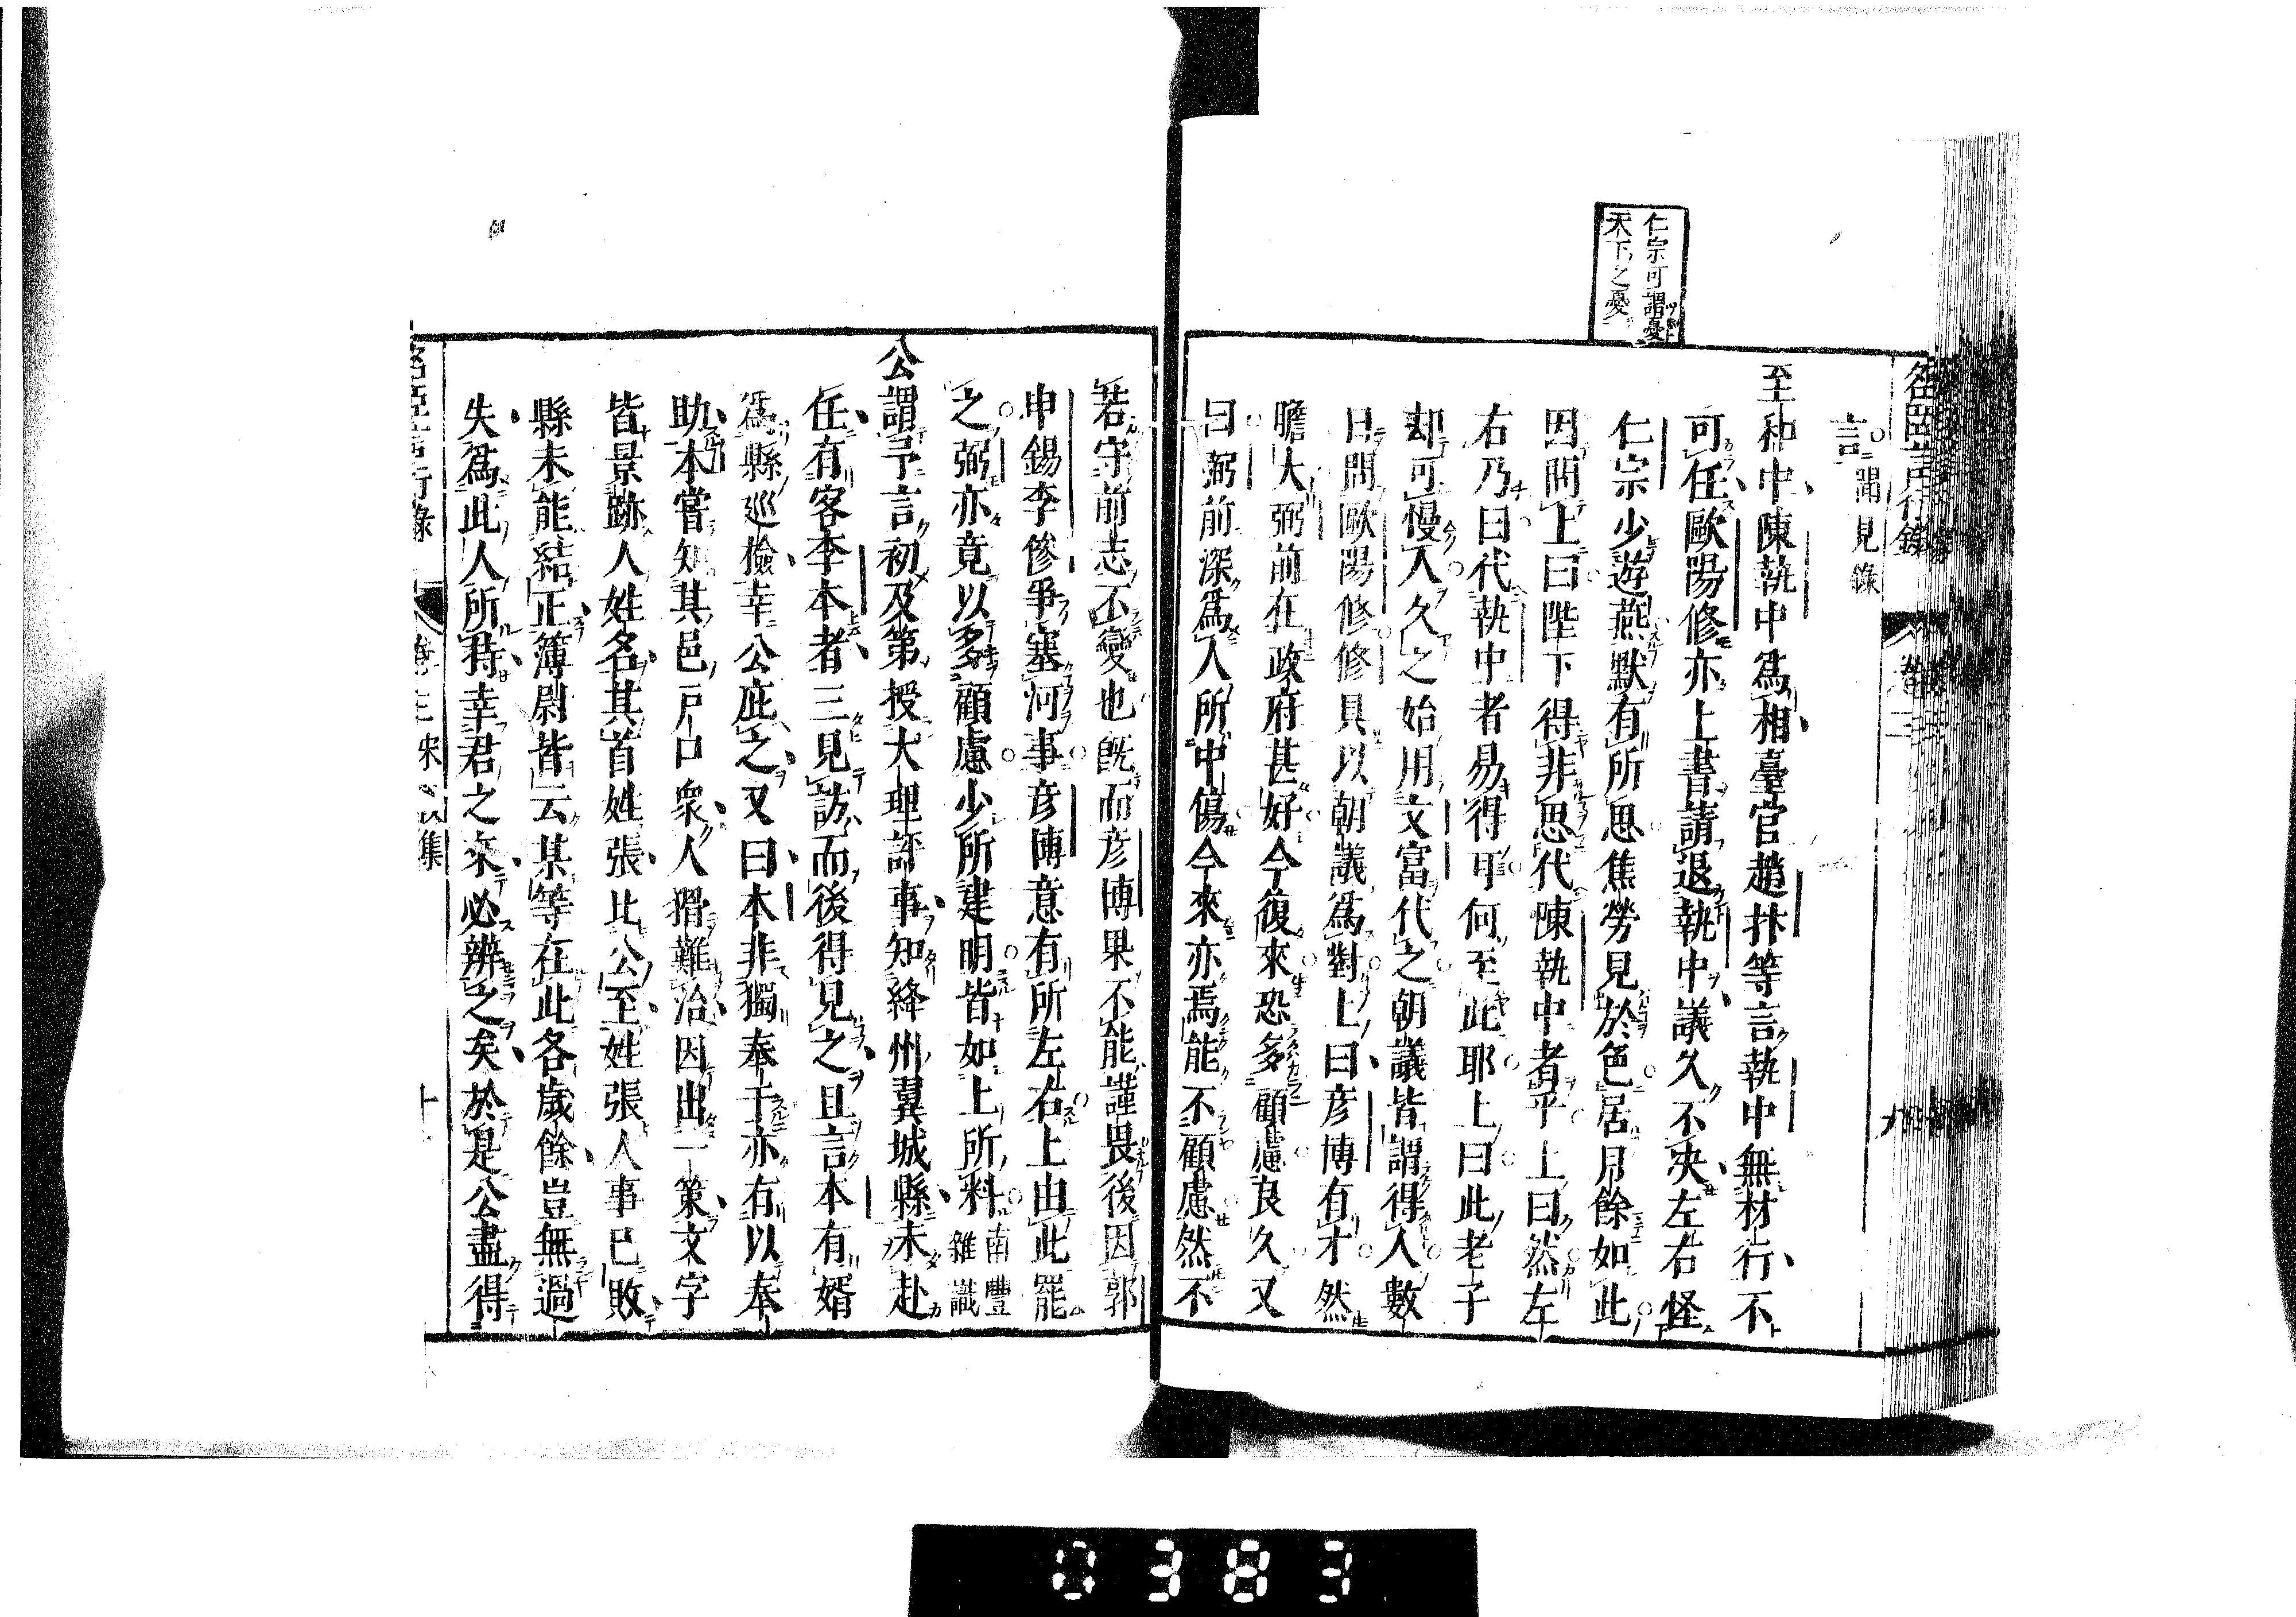 仁宗可謂憂
天下之憂
名臣言行錄
言聞見錄
至和中陳執中爲相臺官趙抃等言執中無材行不
可任歐陽修亦上書請退執中議久不決左右怪
仁宗少遊燕默有所思焦勞見於色居月餘如此
因問上曰陛下得非思代陳執中者乎上曰然左
右乃曰代執中者易得耳何至此耶上曰此老子
却可慢人久之始用文富代之朝議皆謂得人數
日問歐陽修修具以朝議爲對上曰彦博有才然
膽大弼前在政府甚好今復來恐多顧慮良久又
曰弼前深爲人所中傷今來亦焉能不顧慮然不
若守前志不變也旣而彦博果不能謹畏後因郭
申錫李修爭塞河事彦博意有所左右上由此罷
之弼亦竟以多顧慮少所建明皆如上所料南豐
雜識
公謂予言初及第授大理評事知絳州翼城縣未赴
任有客李本者三見訪而後得見之且言本有婿
爲縣巡檢幸公庇之又曰本非獨奉干亦有以奉
助本嘗知其邑戸口衆人猾難治因出一策文字
皆景跡人姓名其首姓張比公至姓張人事已敗
縣未能結正簿尉皆云某等在此各歲餘豈無過
失爲此人所持幸君之來必辨之矣於是公盡得